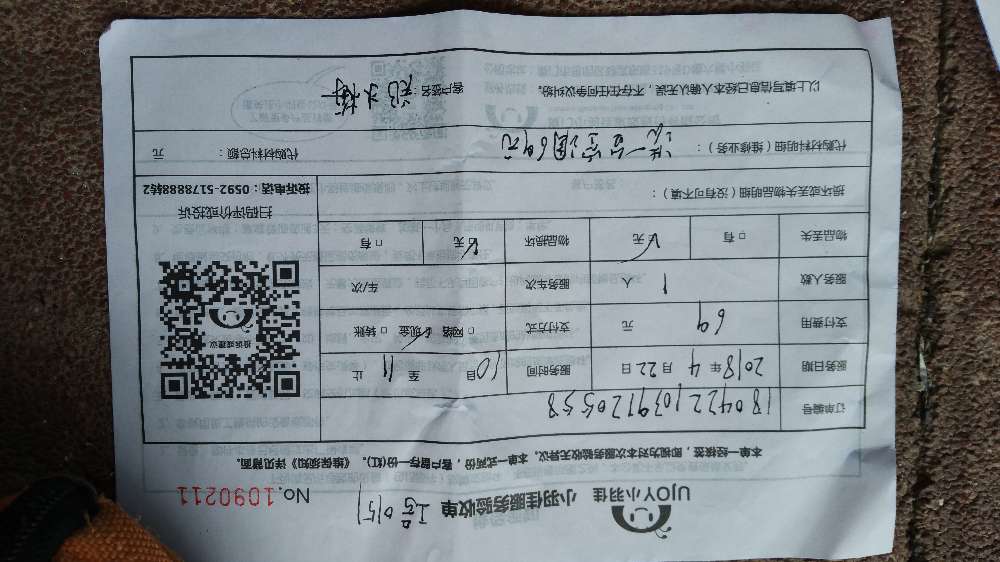 UJOY小羽佳 小羽佳服务验收单 工号0151
No.1090211
本单一经核签，即视为对本次服务验收无异议。本单一式两份，客户留存一份(红)。《维保须知》详见背面。
订单编号 180422103912055558
服务日期 2018年4月22日 服务时间 10自 至 11 止
支付费用 69 元 支付方式 □ 网络 ☑现金 □ 转账
服务人数 1 人 服务车次 车/次
物品丢失 □ 有 ☑无 物品损坏 ☑无 □ 有
损坏或丢失物品明细（没有可不填）：
投诉或建议
扫码评价或投诉
投诉电话：0592-5178888转2
代购材料明细（维修业务）： 洗一台空调69元
代购材料总额： 元
以上填写信息已经本人确认无误，不存在任何争议纠纷。 客户签名：